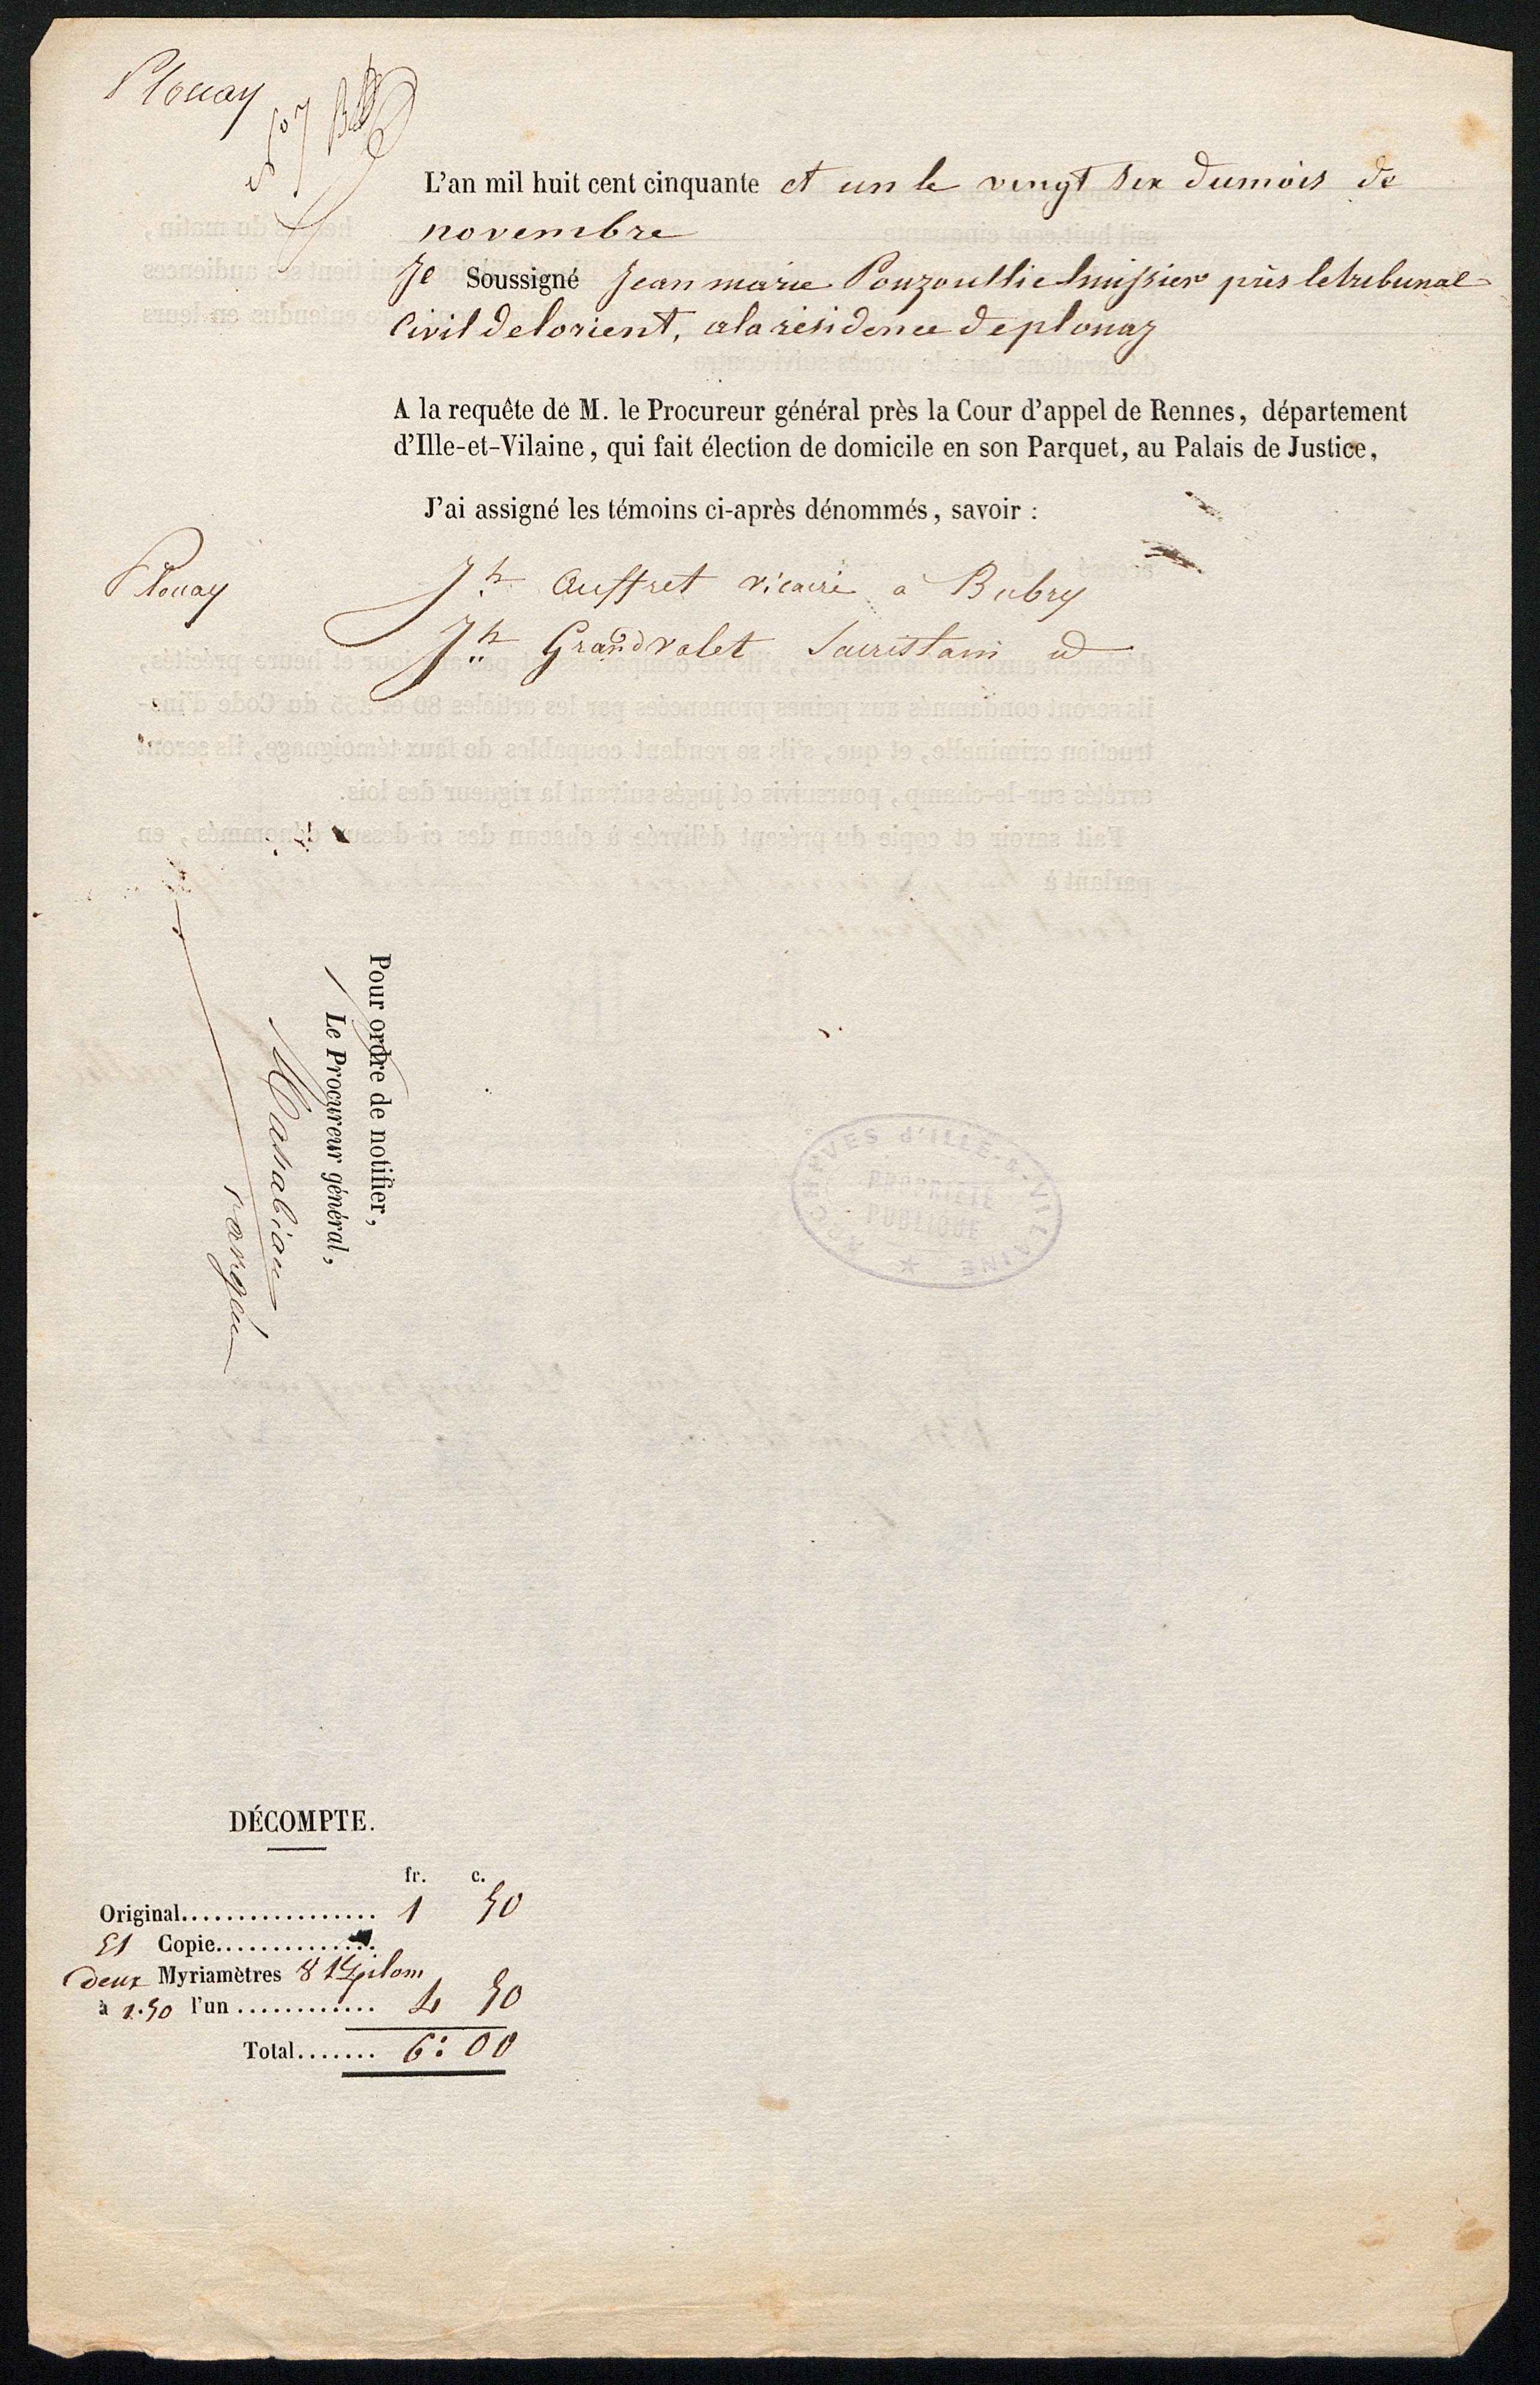 Plouay
L'an mil huit cent cinquante et un le vingt six dumois de
novembre
Je Soussigné Jean marie Pouzoullic huissier près letribunal
Civil delorient, alarésidence deplouay
A la requête de M. le Procureur général près la Cour d'appel de Rennes, département
d'Ille-et-Vilaine, qui fait élection de domicile en son Parquet, au Palais de Justice,
J'ai assigné les témoins ci-après dénommés, savoir :
Plouay
Jh Auffret vicaire à Bubry
Jh Grandvalet Sacristain id
Pour ordre de notifier,
Le Procureur général,
Massabiau
ARCHIVES d'ILLE-&-VILAINE
PROPRIÉTÉ
PUBLIQUE
DÉCOMPTE.
fr. c.
Original................. 1 50
Et Copie..............
deux Myriamètres 8 kilom
à 1.50 l'un ............ 4 50
Total....... 6: 00